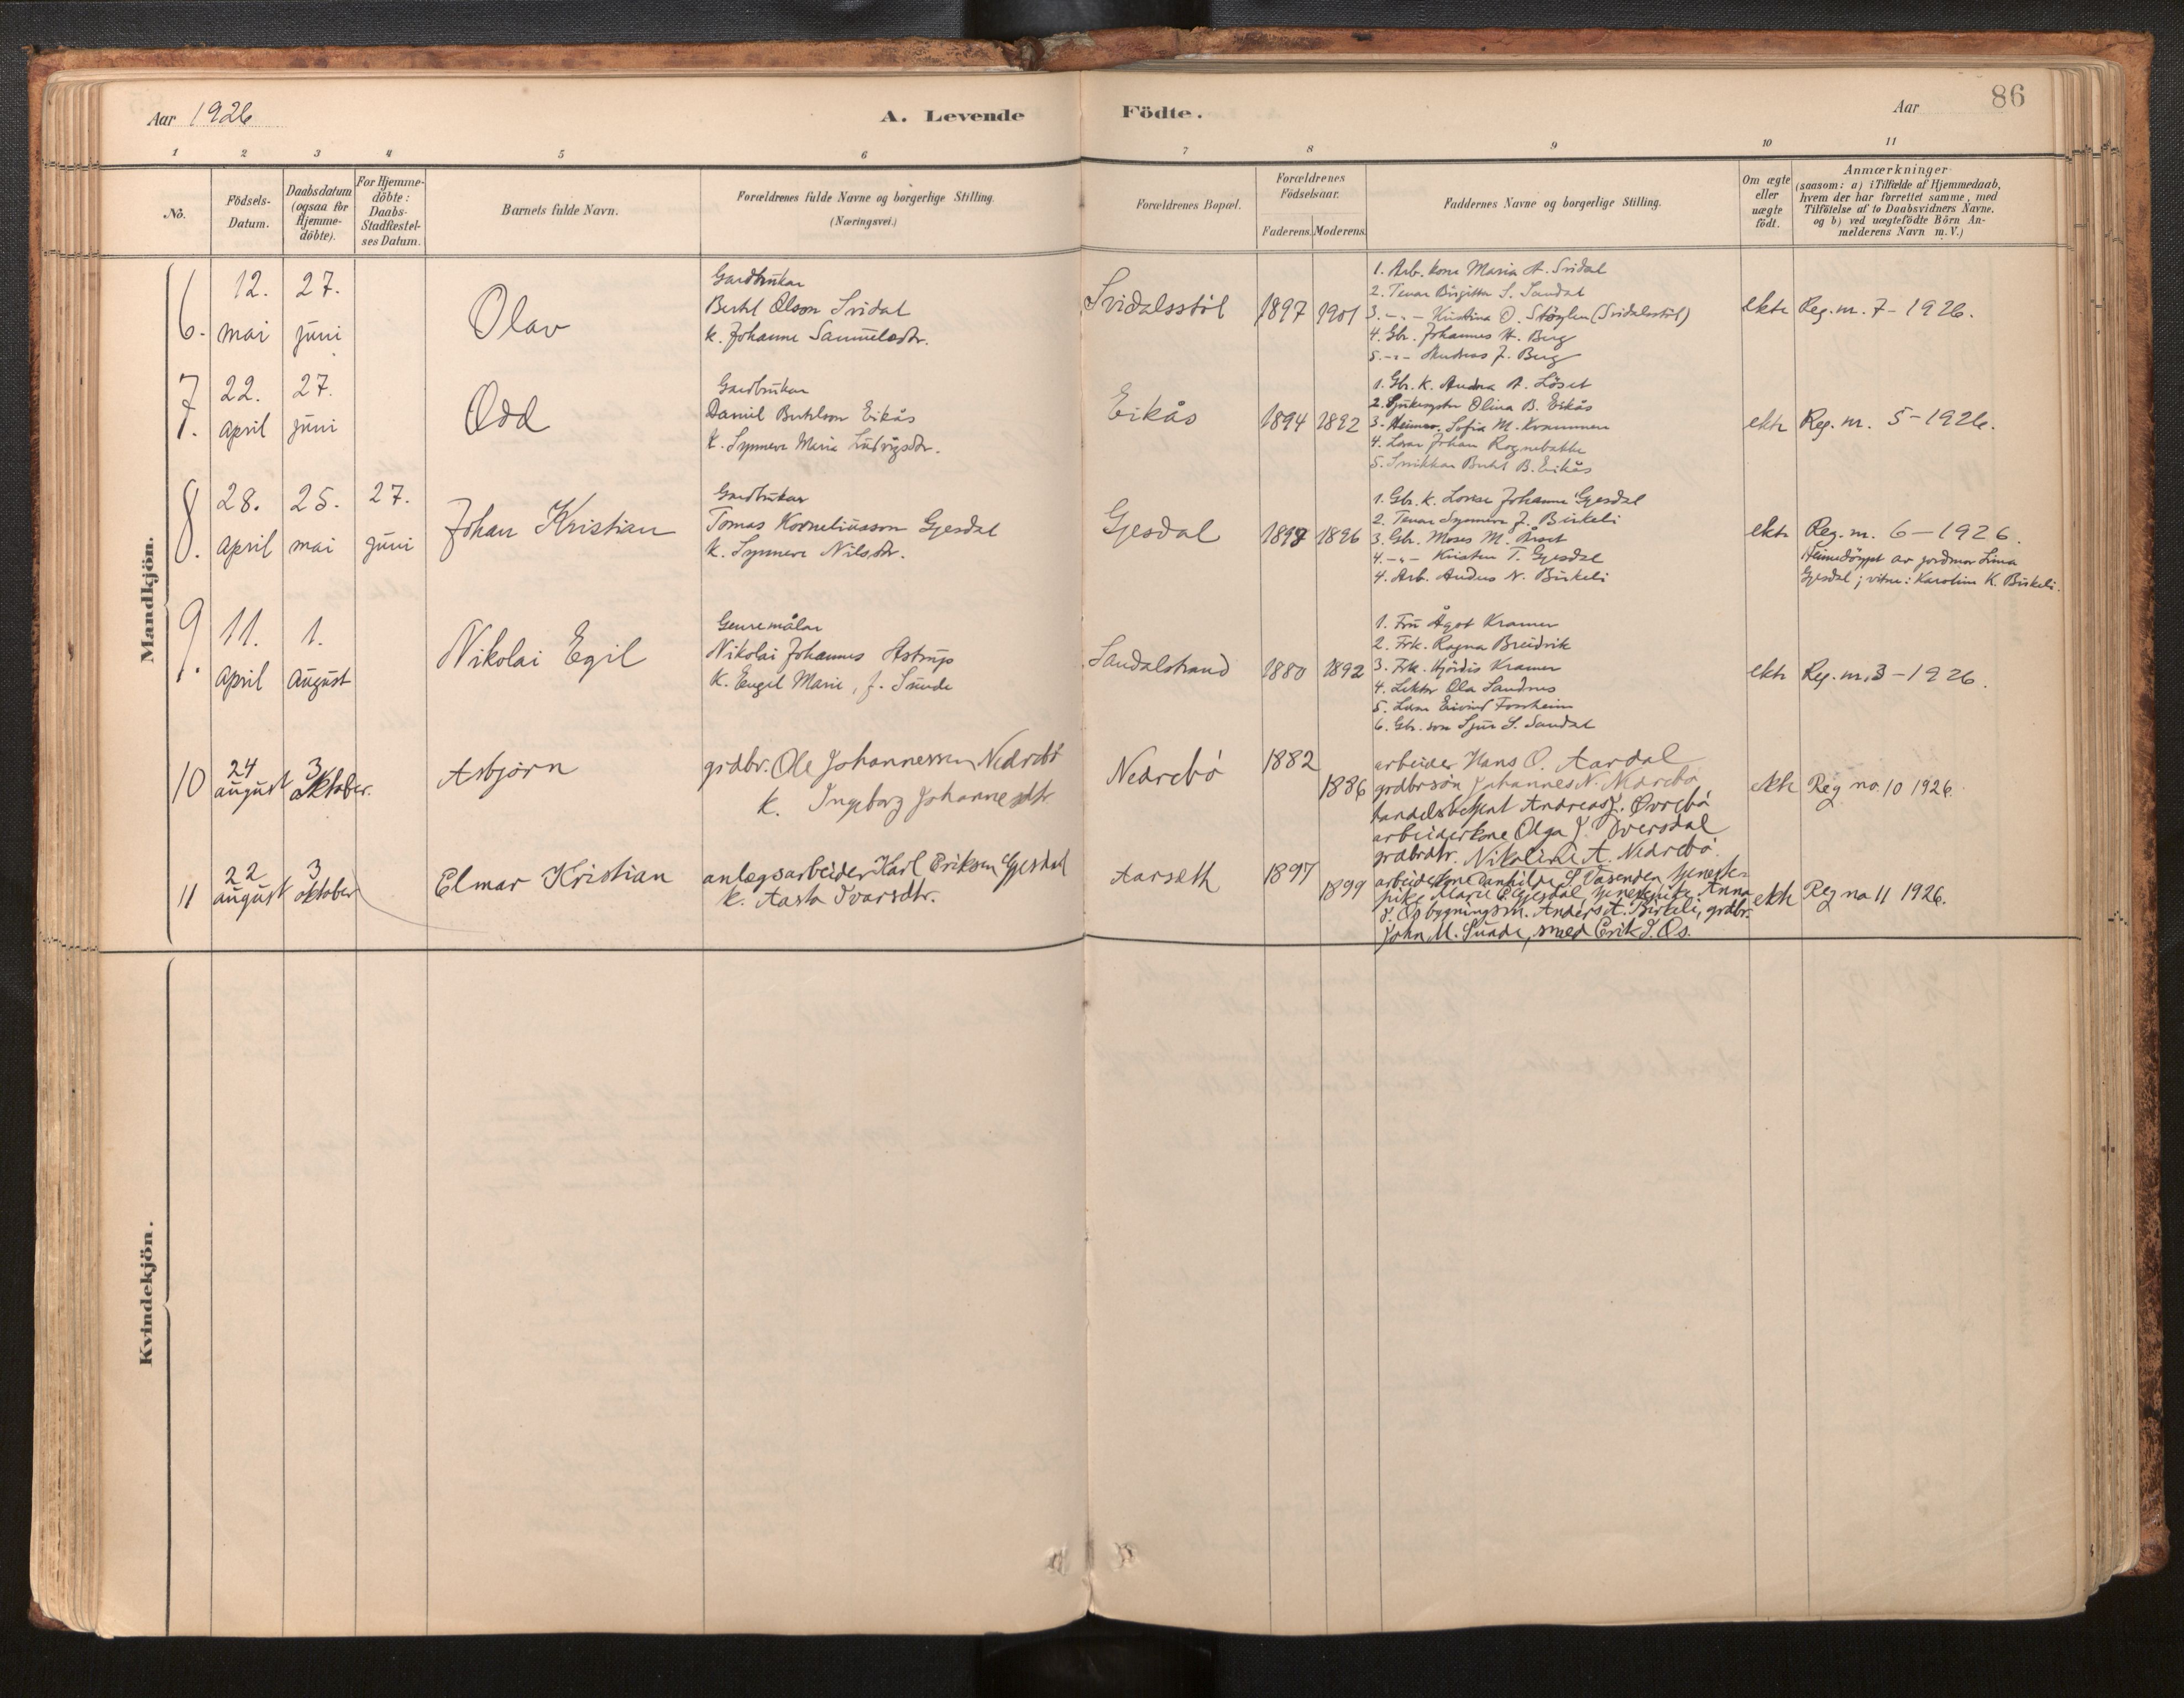 Aar 1926
A. Levende
Födte.
Aar
86
1 2 3 4 5 6 7 8 9 10 11
No.
Födsels-
Datum.
Daabsdatum
(ogsaa for
Hjemme-
döbte).
For Hjemme-
döbte:
Daabs-
Stadfæstel-
ses Datum.
Barnets fulde Navn.
Forældrenes fulde Navne og borgerlige Stilling.
(Næringsvei.)
Forældrenes Bopæl.
Forældrenes
Födselsaar.
Faderens. Moderens.
Faddernes Navne og borgerlige Stilling.
Om ægte
eller
uægte
födt.
Anmærkninger
(saasom: a) i Tilfælde af Hjemmedaab,
hvem der har forrettet samme, med
Tilföielse af to Daabsvidners Navne,
og b) ved uægtefödte Börn An-
melderens Navn m. V.)
Mandkjön.
6.
12.
mai
27.
juni
Olav
Gardbrukar
Bertel Olson Svidal
k. Johanne Samuelsdtr.
Svidalsstöl
1897
1901
1. Arb. kone Maria A. Svidal
2. Tenar Birgitta S. Sandal
3. -„- Kristina O. (Svidalsstöl)
4. Gbr. Johannes H. Berg
5. -„- Andreas J. Berg
ekte
Reg. nr. 7 - 1926.
7.
22.
april
27.
juni
Odd
Gardbrukar
Daniel Bertelson Eikås
k. Synneve Marie Ludvigsdtr.
Eikås
1894
1892
1. Gbr. k. Andrea A. Löset
2. Sjukesyster Olina B. Eikås
3. Heimev. Sofia M. Krammen
4. Lærar Johan Rognebakke
5. Snikkar Bertel B. Eikås
ekte
Reg. nr. 5 - 1926.
8.
28.
april
25.
mai
27.
juni
Johan Kristian
Gardbrukar
Tomas Korneliusson Gjesdal
k. Synneve Nilsdtr.
Gjesdal
1898
1896
1. Gbr. k. Lovise Johanne Gjesdal
2. Tenar Synneve J. Birkeli
3. Gbr. Moses M. Årset
4. -„- Kristen T. Gjesdal
4. Arb. Anders N. Birkeli
ekte
Reg. nr. 6 - 1926.
Heimedöypt av jordmor Lina
Gjesdal; vitne: Karoline K. Birkeli.
9.
11.
april
1.
august
Nikolai Egil
Genremålar
Nikolai Johannes Astrup
k. Engel Marie, f. Sunde
Sandalstrand
1880
1892
1. Fru Ågot Kramer
2. Frk. Ragna Breidvik
3. Frk. Hjördis Kramer
4. Lektor Ola Sandnes
5. Lærar Eivind Forsheim
6. Gbr. son Sjur S. Sandal
ekte
Reg. nr. 3 - 1926.
10
24
august
3
oktober.
Asbjørn
grdbr. Ole Johannessen Nedrebø
k. Ingeborg Johannesdtr.
Nedrebø
1882
1886
arbeider Hans O. Aardal
grdbrsøn Johannes N. Nedrebø
handelsbetjent Andreas J. Øvrebø
arbeiderkone Olga J. Iversdal
grdbrdtr. Nikoline A. Nedrebø.
ekte
Reg no. 10 1926.
11
22
august
3
oktober
Elmar Kristian
anlægsarbeider Karl Eriksen Gjesdal
k. Aasta Ivarsdtr.
Aarseth
1897
1899
arbeiderkone Danhilde S. Vasenden, tjeneste-
pike Marie E. Gjesdal, tjenestepike Anna
J. Os bygningsm. Anders A. Birkeli, grdbr.
John M. Sunde, smed Erik J. Os.
ekte
Reg no 11 1926.
Kvindekjön.